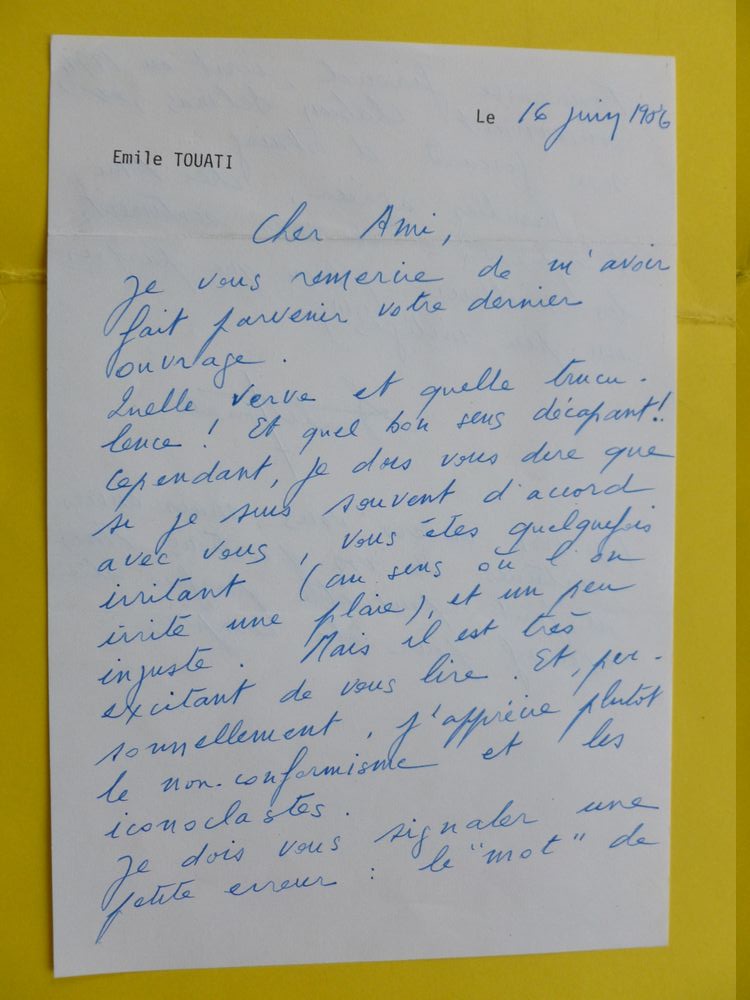 Le 16 juin 1986
Emile TOUATI
Cher Ami,
Je vous remercie de m'avoir
fait parvenir votre dernier
ouvrage.
Quelle verve et quelle trucu-
lence ! Et quel bon sens décapant !!
Cependant, je dois vous dire que
si je suis souvent d'accord
avec vous, vous êtes quelquefois
irritant (au sens où l'on
irrite une plaie), et un peu
injuste. Mais il est très
excitant de vous lire. Et, per-
sonnellement, j'apprécie plutôt
le non-conformisme et les
iconoclastes.
Je dois vous signaler une
petite erreur : le "mot" de